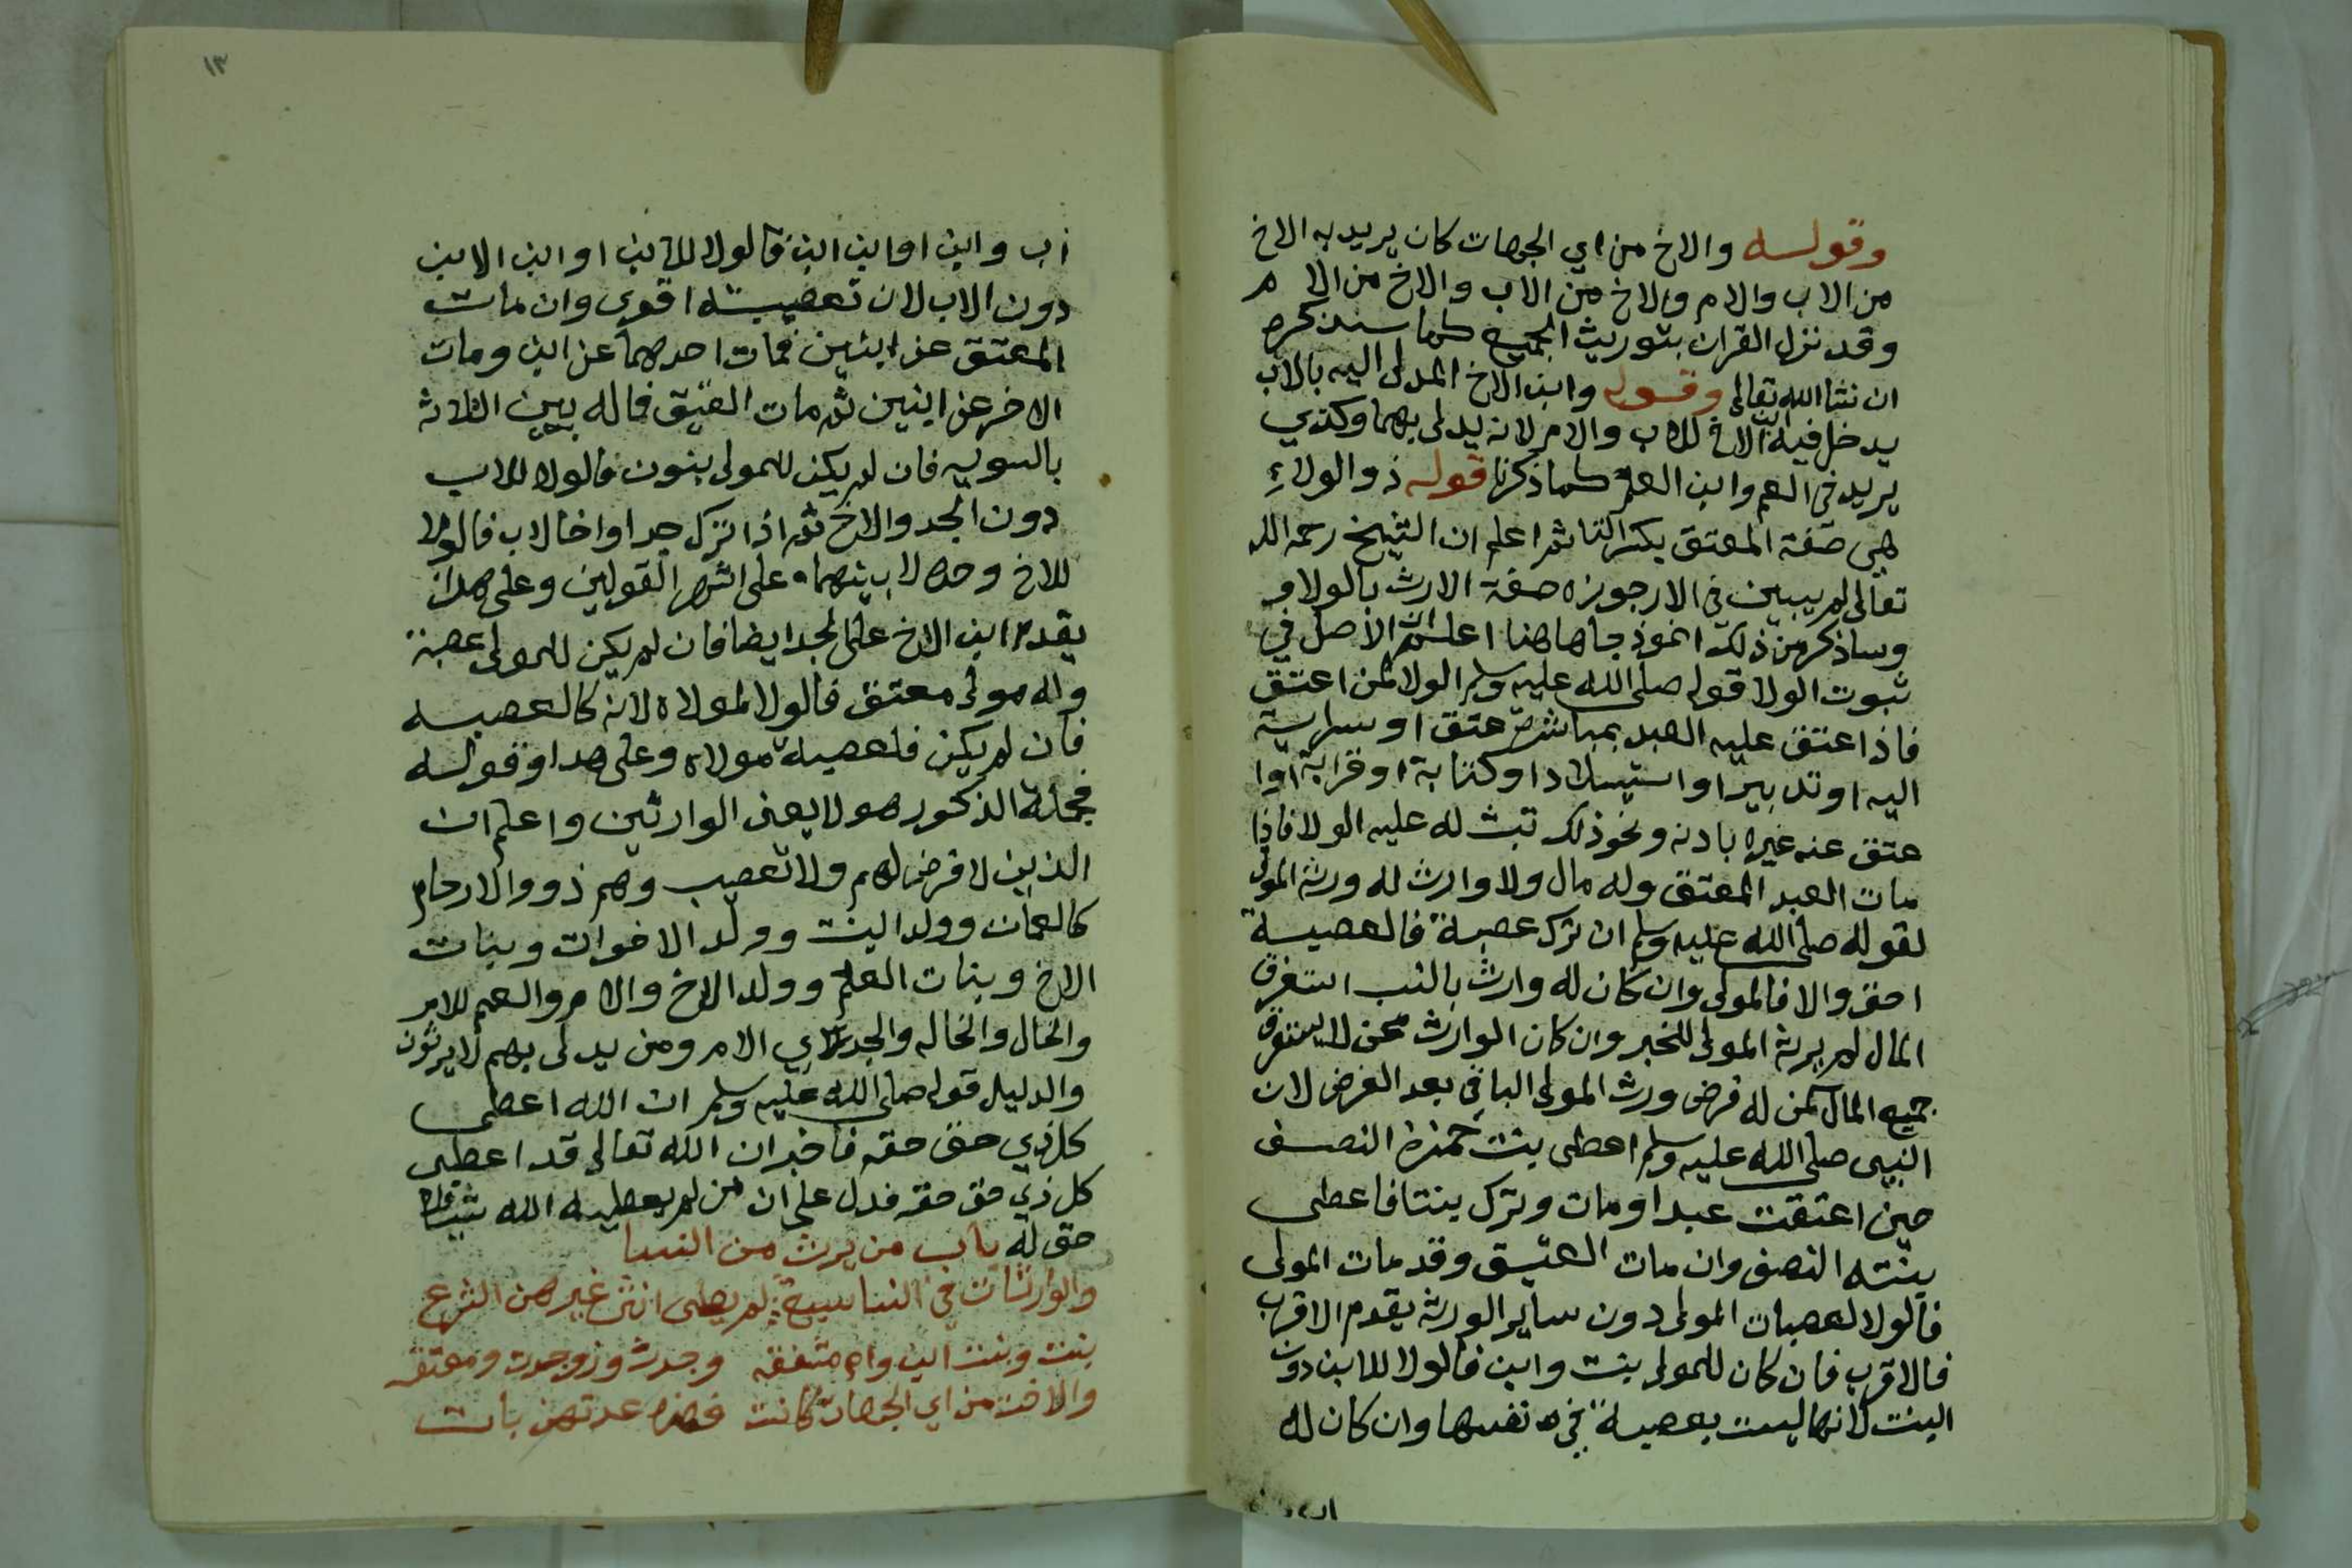 وقوله والاخ من اي الجهات كان يريد به الاخ
من الاب والام والاخ من الاب والاخ من الام
وقد نزل القران بتوريث الجميع كما سنذكره
ان شا الله تعالى وقوله وابن الاخ المدلى اليه بالاب
يدخل فيه ابن الاخ للاب والام لانه يدلى بهما وكذي
يريد في العم وابن العم كما ذكرنا قوله ذو الولاء
هي صفة المعتق بكسر التا ثم اعلم ان الشيخ رحمه الله
تعالى لم يبين في الارجوزه صفة الارث بالولا و
وساذكر من ذلك انموذجا هاهنا اعلم ان الاصل في
ثبوت الولا قوله صلى الله عليه وسلم الولا لمن اعتق
فاذا عتق عليه العبد بمباشرة عتق او سراية
اليه او تدبير او استيلادا وكتابة او قرابة اوا
عتق عنه غيره باذنه ونحو ذلك تبث له عليه الولا فاذا
مات العبد المعتق وله مال ولا وارث له ورثه المولى
لقوله صلى الله عليه وسلم ان ترك عصبة فالعصبة
احق والا فالمولى وان كان له وارث بالنسب استغرق
المال لم يرثه المولى للخبر وان كان الوارث ممن لا يستغرق
جميع المال كمن له فرض ورث المولى الباقي بعد الفرض لان
النبي صلى الله عليه وسلم اعطى بنت حمزة النصف
حين اعتقت عبدا ومات وترك بنتا فاعطى
بنته النصف وان مات العتيق وقد مات المولى
فالولا لعصبات المولى دون ساير الورثه يقدم الاقرب
فالاقرب فان كان للمولى بنت وابن فالولا للابن دون
البنت لانها ليست بعصبة في نفسها وان كان له
١٣
اب وابن او ابن ابن فالولا للابن او ابن الابن
دون الاب لان تعصيبه اقوى وان مات
المعتق عن ابنين فمات احدهما عن ابن ومات
الاخر عن ابنين ثم مات العتيق فماله بين الثلاثه
بالسويه فان لم يكن للمولى بنون فالولا للاب
دون الجد والاخ ثم اذا ترك جدا واخا لاب فالولا
للاخ وحده لا بينهما على اشهر القولين وعلى هذا
يقدم ابن الاخ على الجد ايضا فان لم يكن للمولى عصبة
وله مولى معتق فالولا لمولاه لانه كالعصبه
فان لم يكن فلعصبة مولاه وعلى هدا وقوله
فجملة الذكور هولا يعنى الوارثين واعلم ان
الذين لا فرض لهم ولا تعصيب وهم ذوو الارحام
كالعمات وولد البنت وولد الاخوات وبنات
الاخ وبنات العم وولد الاخ والام والعم للام
والخال والخاله والجد لاي الام ومن يدلى بهم لا يرثون
والدليل قوله صلى الله عليه وسلم ان الله اعطى
كل ذي حق حقه فاخبر ان الله تعالى قد اعطى
كل ذي حق حقه فدل على ان من لم يعطيه الله شيئا فلا
حق له باب من يرث من النسا
والوارثات في النسا سبع لم يعطى انثى غيرهن الشرع
بنت وبنت ابن وام مشفقه وجدة وزوجة ومعتقه
والاخت من اي الجهات كانت فهذه عدتهن بانت